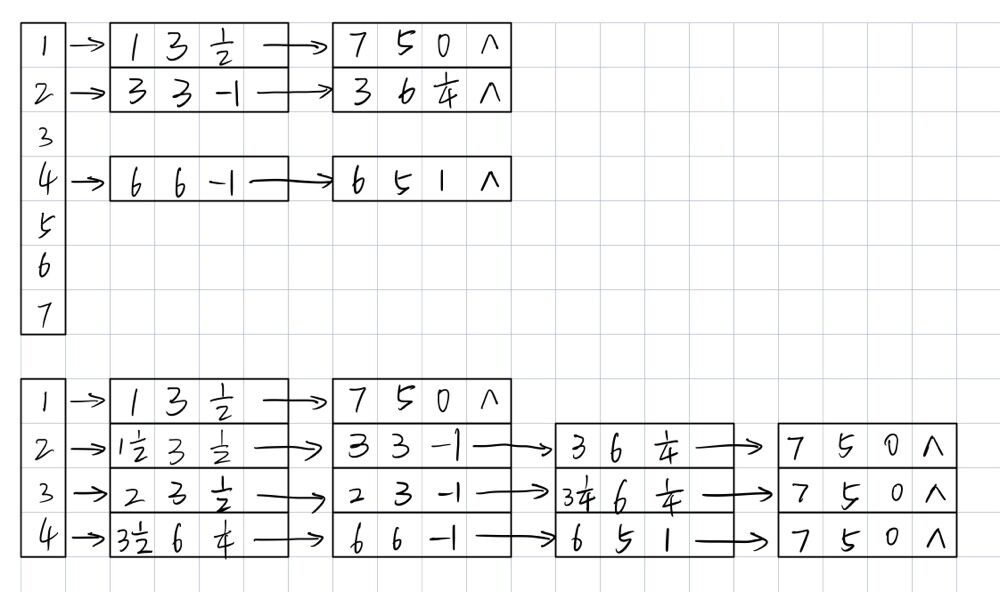 1 → 1 3 1/2 → 7 5 0 ∧
2 → 3 3 -1 → 3 6 1/4 ∧
3
4 → 6 6 -1 → 6 5 1 ∧
5
6
7
1 → 1 3 1/2 → 7 5 0 ∧
2 → 1 1/2 3 1/2 → 3 3 -1 → 3 6 1/4 → 7 5 0 ∧
3 → 2 3 1/2 → 2 3 -1 → 3 1/4 6 1/4 → 7 5 0 ∧
4 → 3 1/2 6 1/4 → 6 6 -1 → 6 5 1 → 7 5 0 ∧